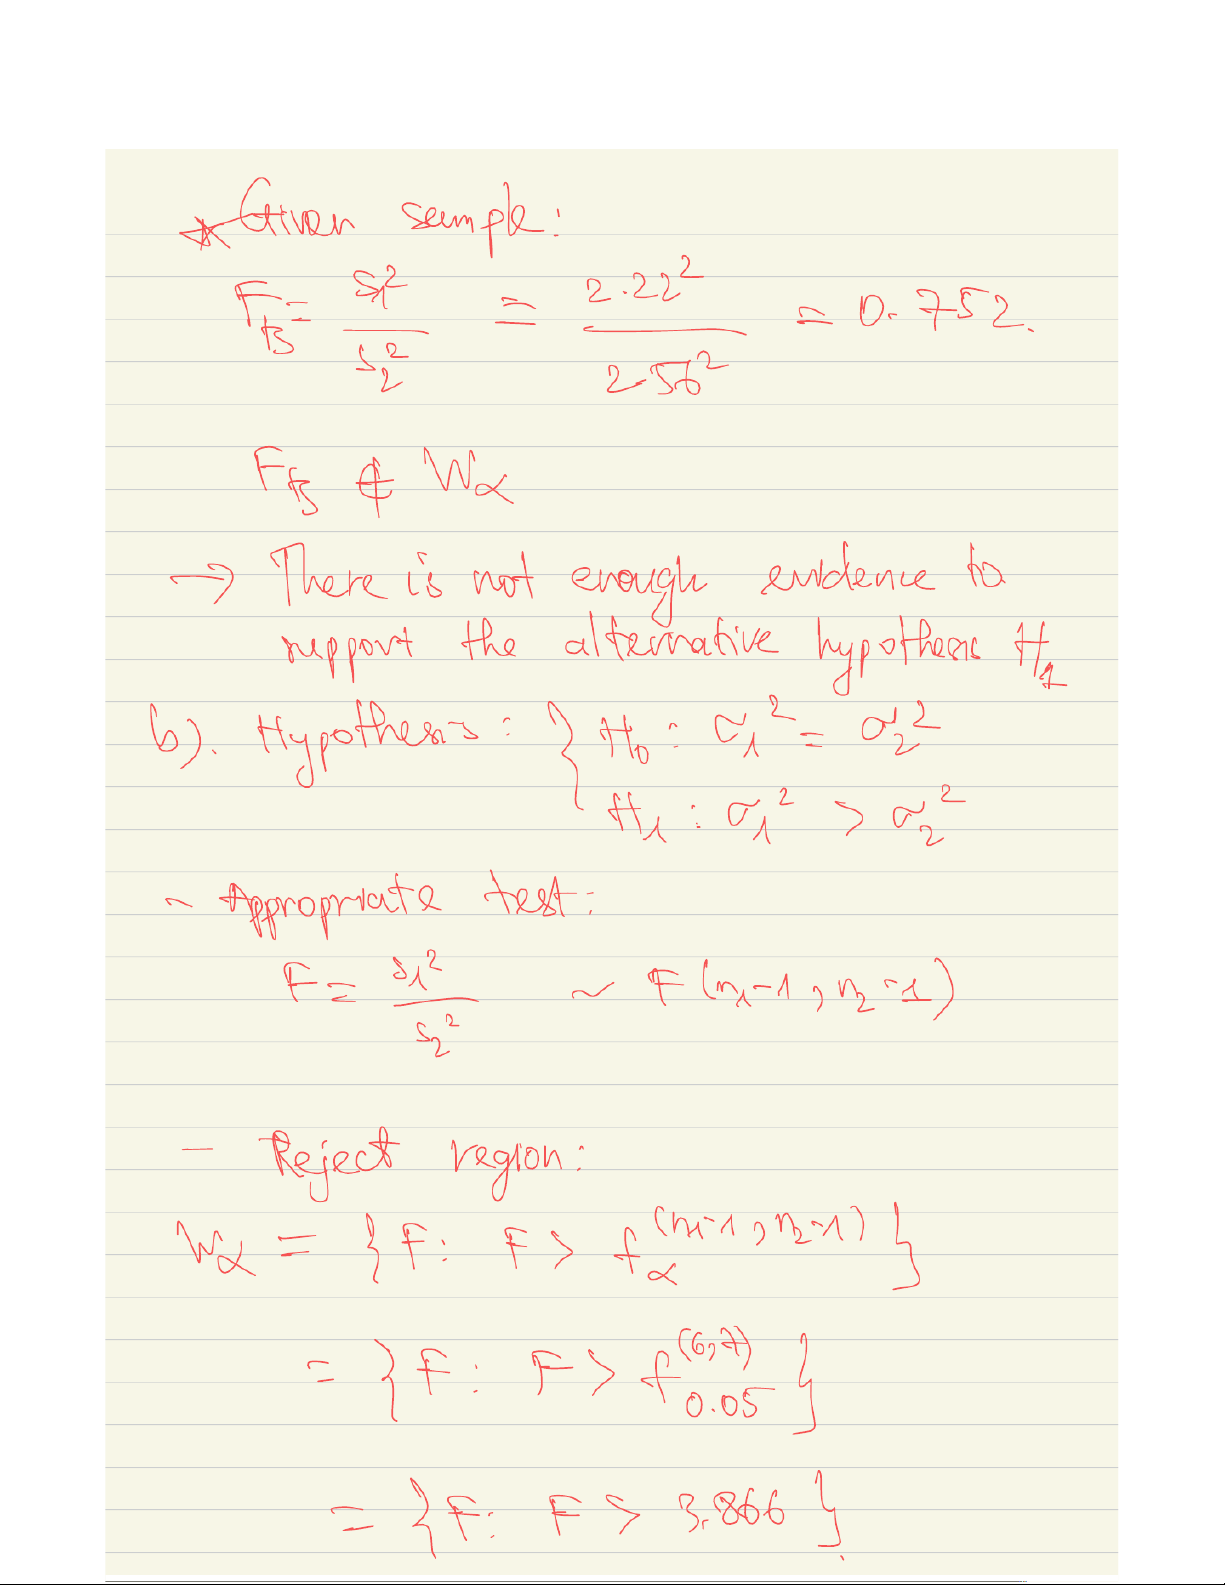 * Given sample:
F_tb = s₁² / s₂² = 2.22² / 2.56² = 0.752.
F_tb ∉ Wα
→ There is not enough evidence to
support the alternative hypothesis H₁
b). Hypothesis: { H₀: σ₁² = σ₂²
H₁: σ₁² > σ₂²
- Appropriate test:
F = s₁² / s₂² ~ F(n₁-1, n₂-1)
- Reject region:
Wα = {F: F > f_α^(n₁-1, n₂-1)}
= {F: F > f_0.05^(6,7)}
= {F: F > 3.866}.